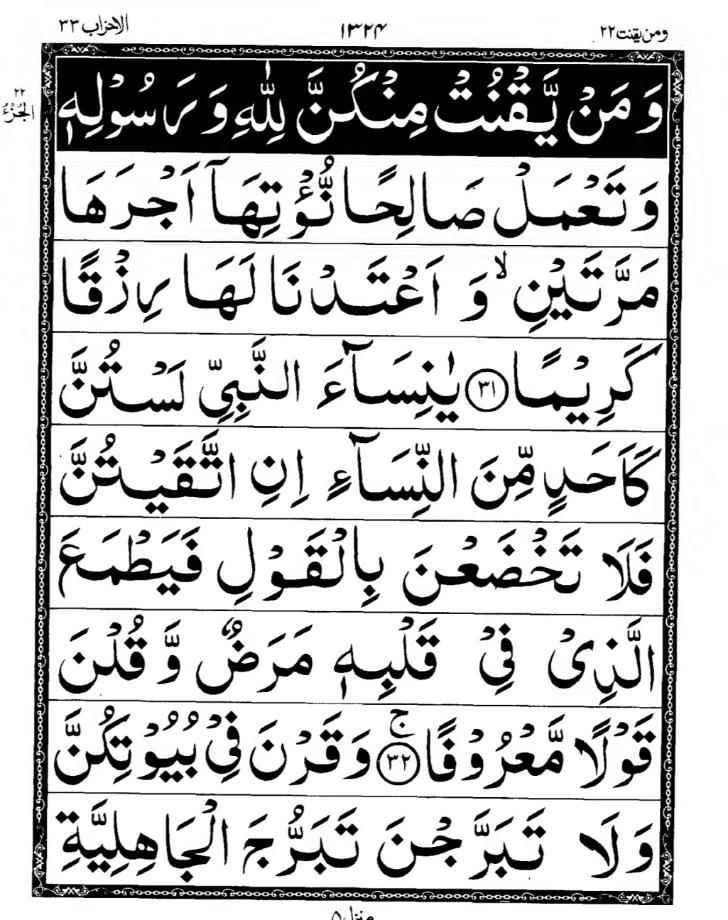 ومن یقنت ۲۲
۱۳۲۴
الاحزاب ۳۳
۲۲
الجُزْءُ
وَ مَنْ یَّقْنُتْ مِنْكُنَّ لِلّٰهِ وَ رَسُوْلِهٖ
وَ تَعْمَلْ صَالِحًا نُّؤْتِهَاۤ اَجْرَهَا
مَرَّتَیْنِ ۙ وَ اَعْتَدْنَا لَهَا رِزْقًا
كَرِیْمًا ﴿۳۱﴾ یٰنِسَآءَ النَّبِیِّ لَسْتُنَّ
كَاَحَدٍ مِّنَ النِّسَآءِ اِنِ اتَّقَیْتُنَّ
فَلَا تَخْضَعْنَ بِالْقَوْلِ فَیَطْمَعَ
الَّذِیْ فِیْ قَلْبِهٖ مَرَضٌ وَّ قُلْنَ
قَوْلًا مَّعْرُوْفًا ﴿۳۲﴾ ۚ وَ قَرْنَ فِیْ بُیُوْتِكُنَّ
وَ لَا تَبَرَّجْنَ تَبَرُّجَ الْجَاهِلِیَّةِ
منزل ۵